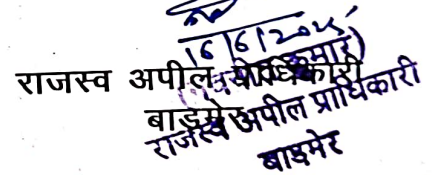 16/6/2025
राजस्व अपील प्राधिकारी
बाड़मेर
राजस्व अपील प्राधिकारी
बाड़मेर